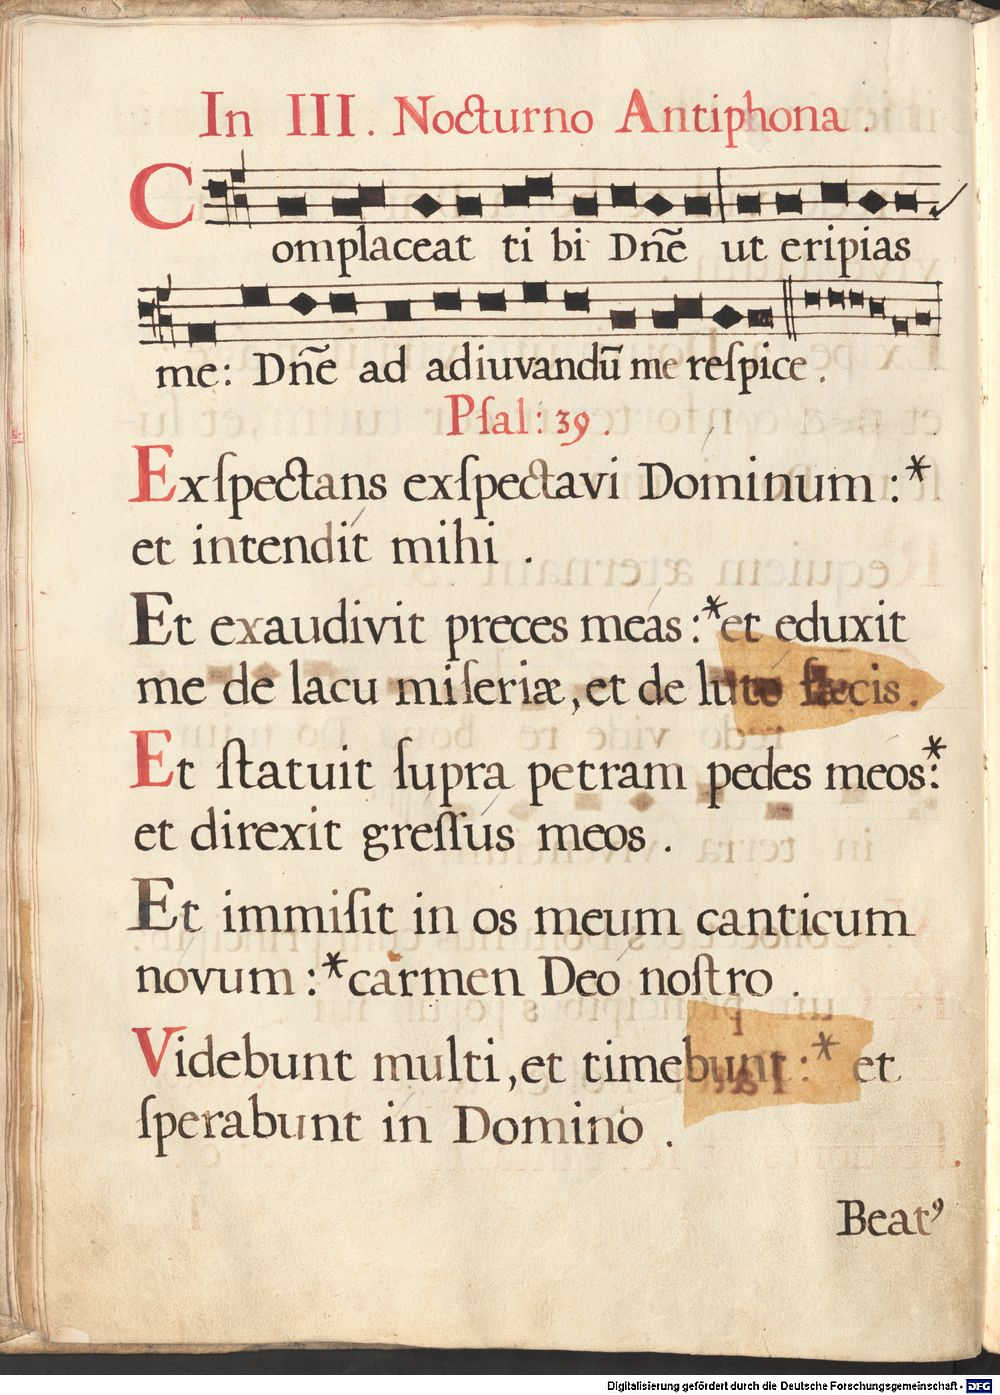 In III. Nocturno Antiphona.
Complaceat ti bi Dñe ut eripias
me: Dñe ad adiuvandū me reſpice.
Pſal: 39.
Exſpectans exſpectavi Dominum :*
et intendit mihi .
Et exaudivit preces meas :* et eduxit
me de lacu miſeriæ, et de luto fæcis.
Et ſtatuit ſupra petram pedes meos:*
et direxit greſſus meos .
Et immiſit in os meum canticum
novum :* carmen Deo noſtro .
Videbunt multi, et timebunt :* et
ſperabunt in Domino .
Beatꝰ
Digitalisierung gefördert durch die Deutsche Forschungsgemeinschaft - DFG